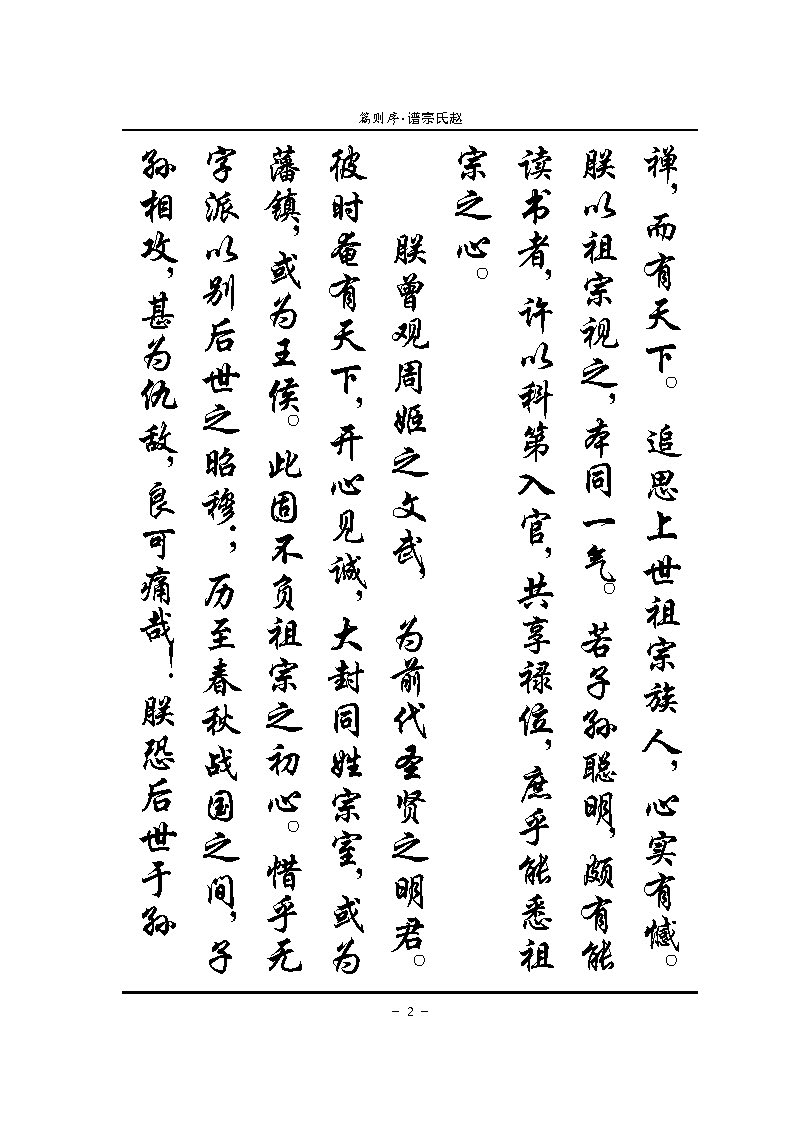 赵氏宗谱·序则篇
禅，而有天下。追思上世祖宗族人，心实有憾。
朕以祖宗视之，本同一气。若子孙聪明，颇有能
读书者，许以科第入官，共享禄位，庶乎能悉祖
宗之心。
朕曾观周姬之文武，为前代圣贤之明君。
彼时奄有天下，开心见诚，大封同姓宗室，或为
藩镇，或为王侯。此固不负祖宗之初心。惜乎无
字派以别后世之昭穆；历至春秋战国之间，子
孙相攻，甚为仇敌，良可痛哉！朕恐后世于孙
- 2 -